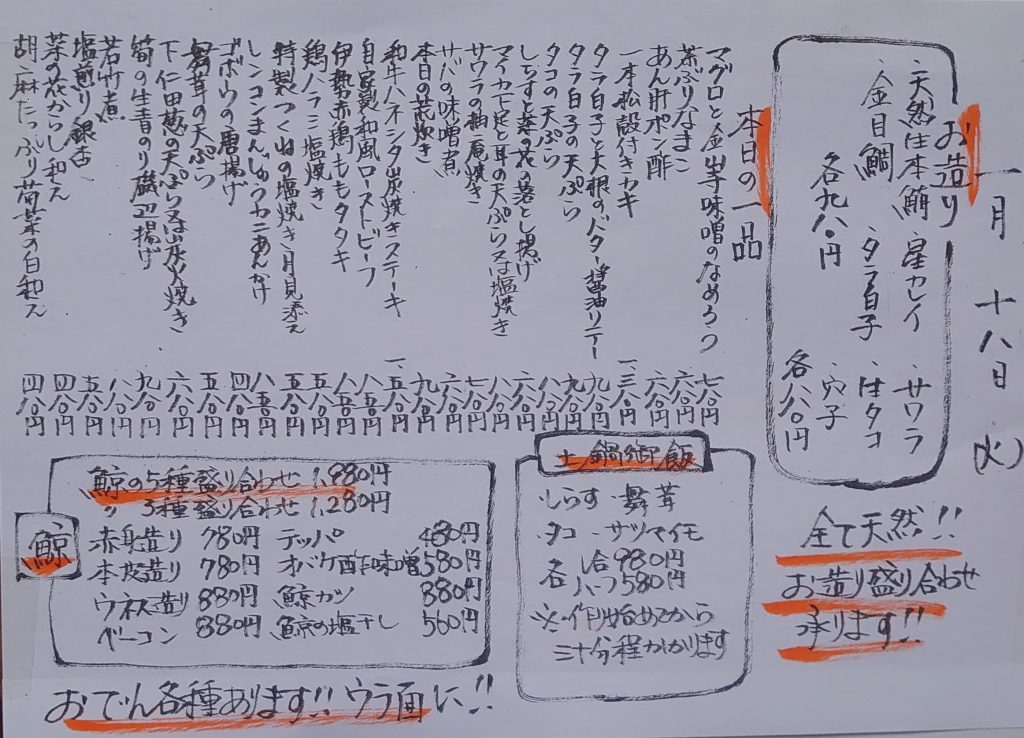 一月十八日(火)
お造り
・天然生本鮪 ・星カレイ ・サワラ
・金目鯛 ・タラ白子 ・生タコ
各九八〇円 ・穴子
各八八〇円
全て天然!!
お造り盛り合わせ
承ります!!
本日の一品
マグロと金山寺味噌のなめろう 七八〇円
茶ぶりなまこ 六八〇円
あん肝ポン酢 六八〇円
一本松殻付きカキ
タラ白子と大根のバター醤油ソテー
タラ白子の天ぷら
タコの天ぷら
しらすと菜の花の落とし揚げ
マイカゲソと耳の天ぷら又は塩焼き
サワラの柚庵焼き
サバの味噌煮
本日の荒炊き
和牛ハネシタ炭焼きステーキ
自家製和風ローストビーフ
伊勢赤鶏ももタタキ
鶏ハラミ塩焼き
特製つくねの塩焼き月見添え
レンコンまんじゅうカニあんかけ
ゴボウの唐揚げ
舞茸の天ぷら
下仁田葱の天ぷら又は炭火焼き
筍の生青のり磯辺揚げ
若竹煮
塩煎り銀杏 五八〇円
菜の花からし和え 四八〇円
胡麻たっぷり菊菜の白和え 四八〇円
土鍋御飯
・しらす ・舞茸
・タコ ・サツマイモ
各 一合 980円
ハーフ 580円
※作り始めてから
三十分程かかります
鯨
鯨の5種盛り合わせ 1,980円
〃 3種盛り合わせ 1,280円
赤身造り 780円 テッパ 480円
本皮造り 780円 オバケ酢味噌 580円
ウネス造り 880円 鯨カツ 880円
ベーコン 880円 鯨の塩干し 560円
おでん各種あります!! ウラ面に!!